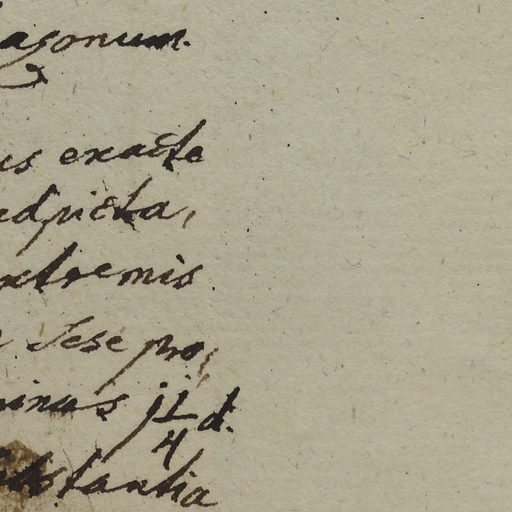 agonum.
us exacte
edpicta,
xtremis
Sese pro,
inus j 1/4 d.
substantia